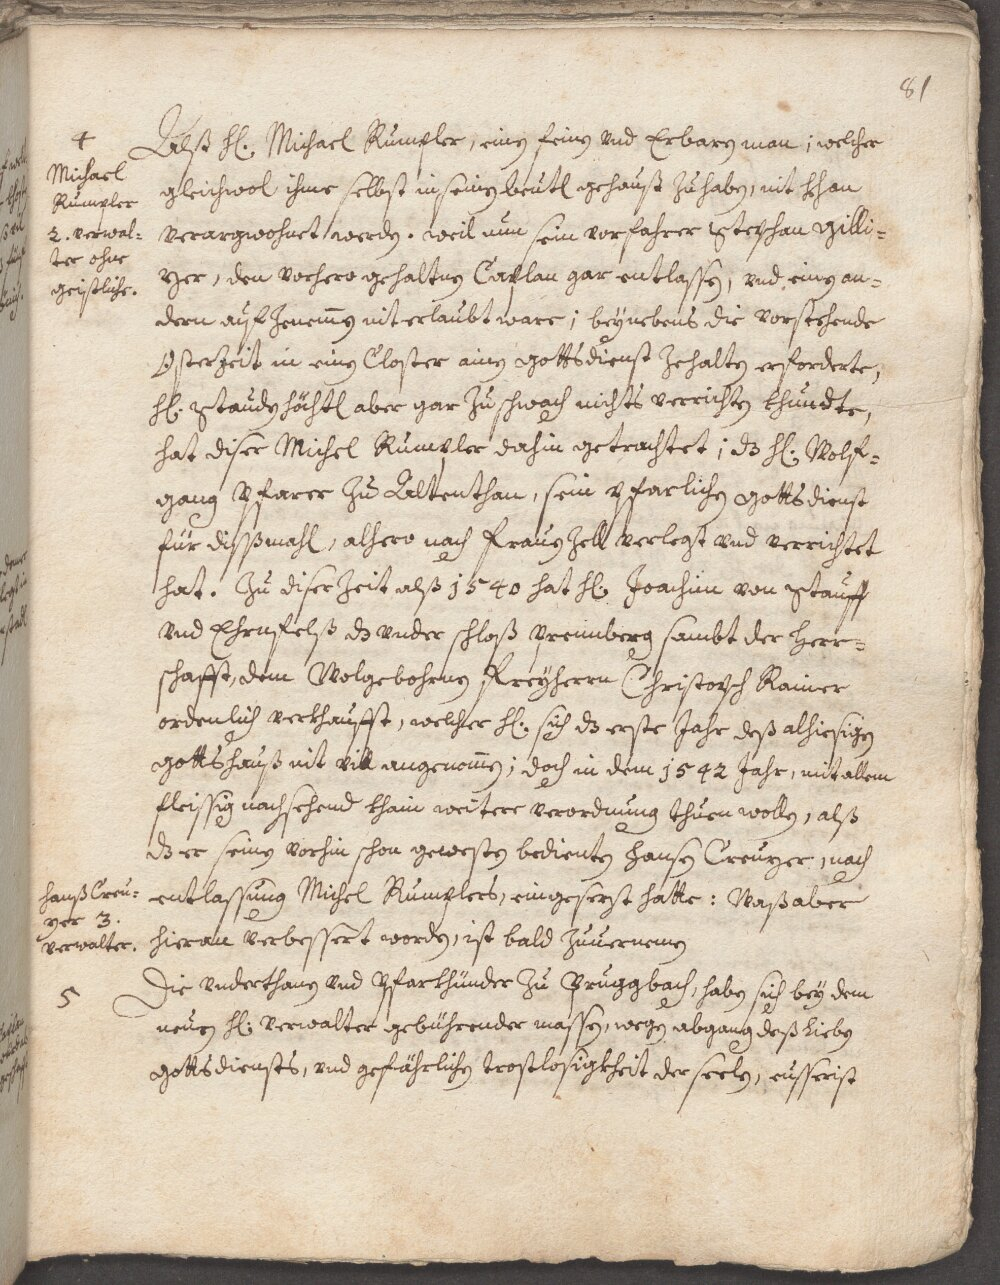 81
4
Michael
Rumpler
2. verwal=
ter ohne
geistliche.
Alß hl. Michael Rumpler, einen feinen vnd Erbaren man; welcher
gleichwol ihme selbst in seinen beutl gehaust zuhaben, nit khan
verargwohnet werden. weil nun sein vorfahrer Stephan Gilli=
zer, den vorhero gehaltnen Caplan gar entlassen, vnd einen an=
dern auf Zenemmen nit erlaubt ware; beÿnebens die vorstehende
Osterzeit in einen Closter ainen gottsdienst Zehalten erforderte,
hl. Staudenhöchtl aber gar Zu schwach nichts verrichten khundte,
hat diser Michel Rumpler dahin getrachtet; dz hl. Wolf=
gang Pfarer Zu Altenthan, sein Pfarlichen gottsdienst
für dißmahl, alhero nach FrauenZell verlegt vnd verrichtet
hat. Zu diser Zeit alß 1540 hat hl. Joachim von Stauff
vnd Ehrnfelß dz vnder schloß prennberg sambt der Herr=
schafft, dem Wolgebohrnen Freÿherrn Christoph Rainer
ordenlich verkhaufft, welcher hl. sich dz erste Jahr deß alhiesigen
gottshauß nit vill angenommen; doch in dem 1542 Jahr, mit allem
fleissig nachsehend kham weitere verordnung thuen wollen, alß
dz er seinen vorhin schon gewesten bedienten Hansen Creuzer, nach
entlassung Michel Rumplers, eingesezt hatte: Waß aber
hieran verbessert worden, ist bald Zuuernemen
Hanß Creu=
zer 3.
verwalter.
5
Die vnderthanen vnd Pfarkhünder Zu Pruggbach, haben sich beÿ dem
neuen hl. verwalter gebührender massen, wegen abgang deß lieben
gottsdiensts, vnd gefährlichen trostlosigkheit der seelen, eusserist